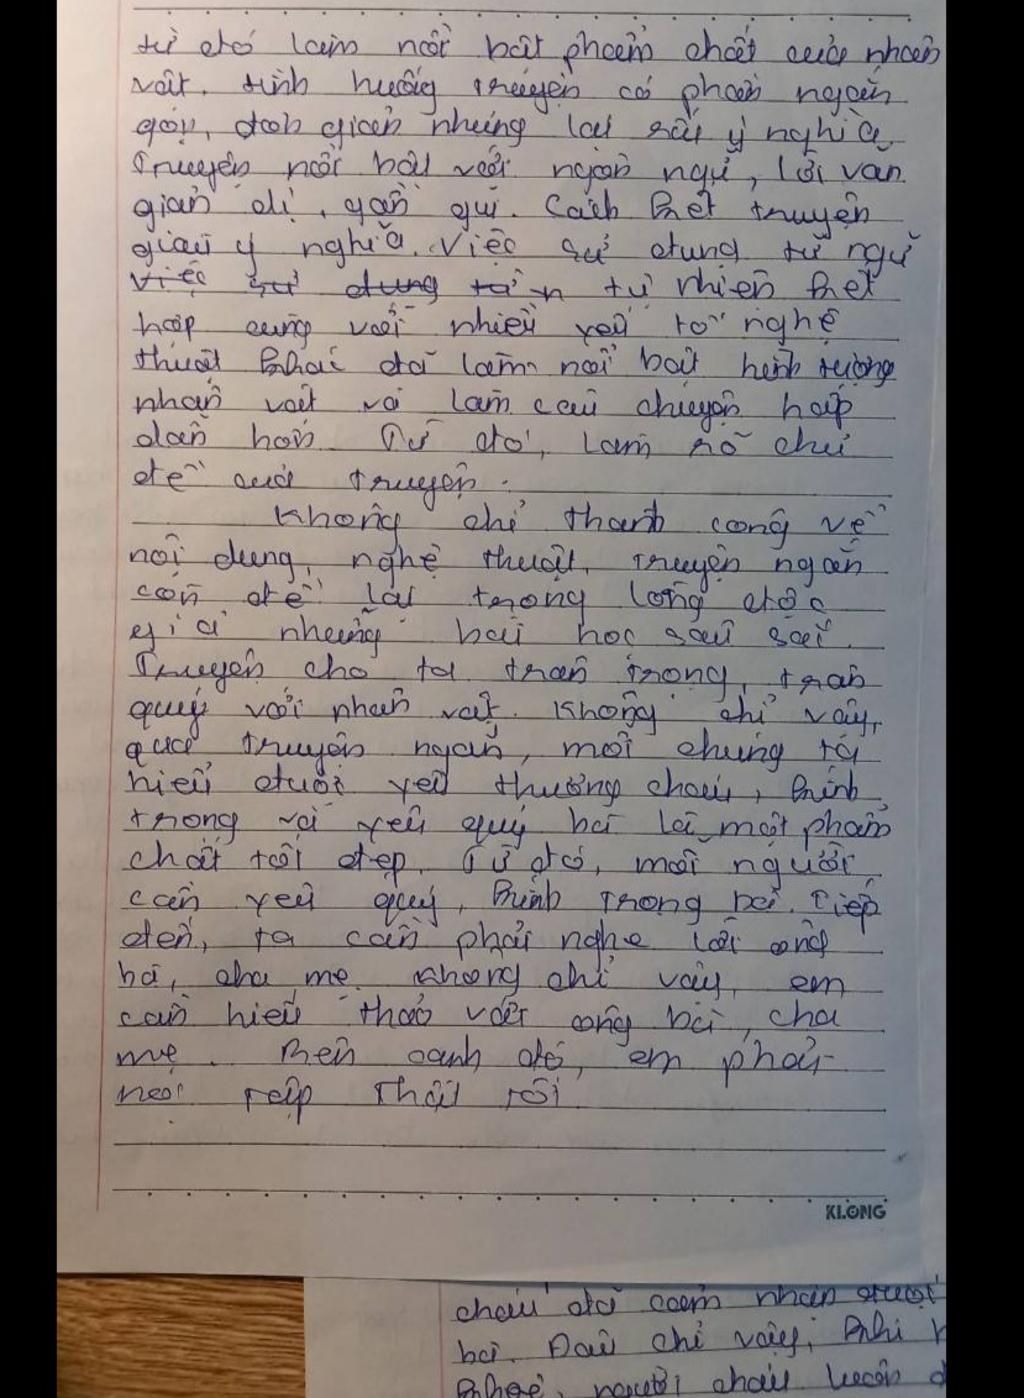 từ đó làm nổi bật phẩm chất của nhân
vật. tình huống truyện có phần ngắn
gọn, đơn giản nhưng lại rất ý nghĩa.
Truyện nổi bật với ngôn ngữ, lời văn
giản dị, gần gũi. Cách kết truyện
giàu ý nghĩa. Việc sử dụng từ ngữ
việc sử dụng tự nhiên kết
hợp cùng với nhiều yếu tố nghệ
thuật khác đã làm nổi bật hình tượng
nhân vật và làm câu chuyện hấp
dẫn hơn. Từ đó, làm rõ chủ
đề của truyện.
Không chỉ thành công về
nội dung, nghệ thuật, truyện ngắn
còn để lại trong lòng độc
giả những bài học sâu sắc.
Truyện cho ta trân trọng, trân
quý với nhân vật. Không chỉ vậy,
qua truyện ngắn, mỗi chúng ta
hiểu được yêu thương cháu, kính
trọng và yêu quý bà là một phẩm
chất tốt đẹp. Từ đó, mỗi người
cần yêu quý, kính trọng bà. Tiếp
đến, ta cần phải nghe lời ông
bà, cha mẹ. Không chỉ vậy, em
cần hiếu thảo với ông bà, cha
mẹ. Bên cạnh đó, em phải
học tập thật tốt
KLONG
cháu đã cảm nhận được
bà. Đâu chỉ vậy, khi
khoẻ, người cháu luôn